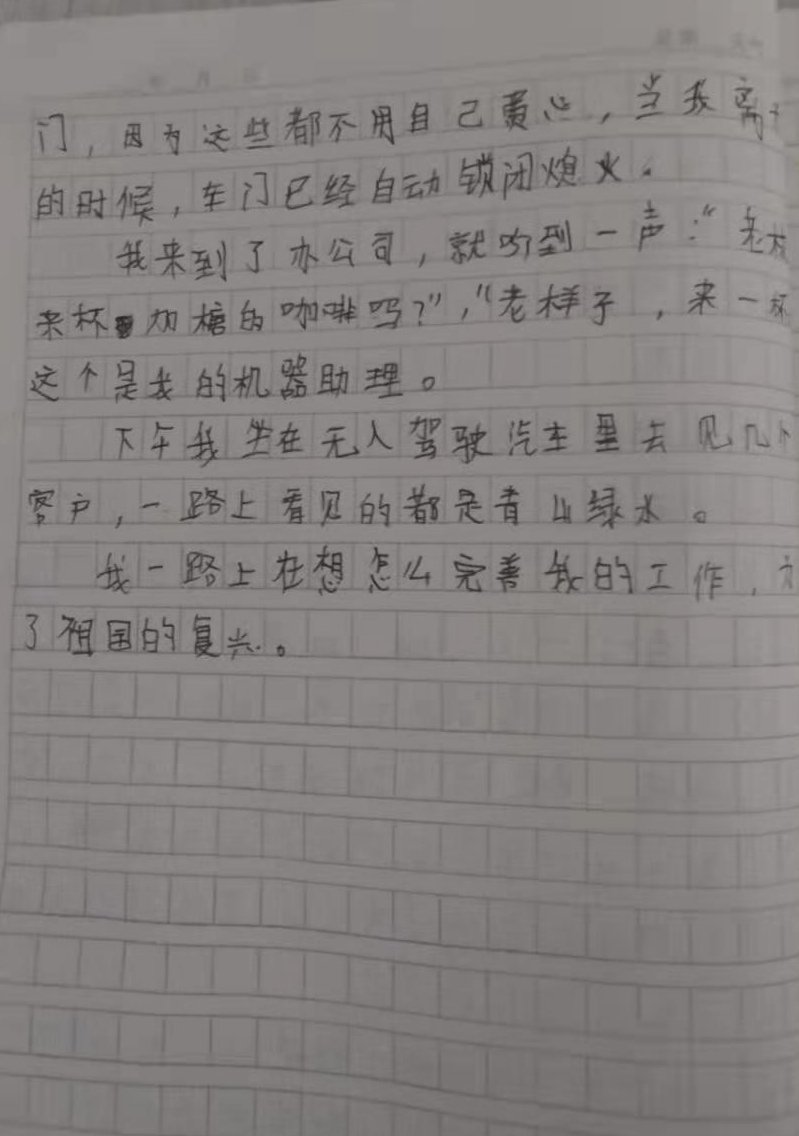 门，因为这些都不用自己费心，当我离
的时候，车门已经自动锁闭熄火。
我来到了办公司，就听到一声：“老板
来杯加糖的咖啡吗？”，“老样子，来一杯
这个是我的机器助理。
下午我坐在无人驾驶汽车里去见几个
客户，一路上看见的都是青山绿水。
我一路上在想怎么完善我的工作，为
了祖国的复兴。